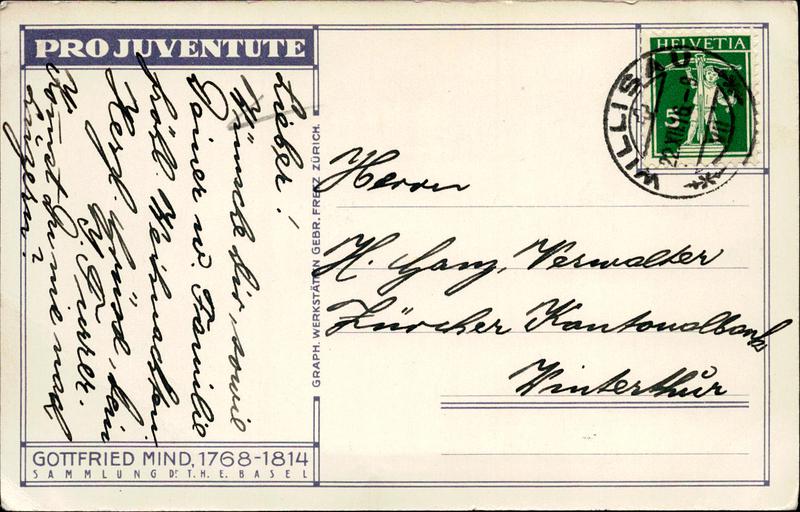 PRO JUVENTUTE
Lieber!
Wünsche dir, sowie
Deiner w. Familie
fröhl. Weihnachten.
Herzl. Gruss, dein
J. Furrer.
Kommst du nie nach
Luzern?
GOTTFRIED MIND, 1768-1814
SAMMLUNG DR. TH. E. BASEL
GRAPH. WERKSTÄTTEN GEBR. FRETZ ZÜRICH.
HELVETIA
5
WILLISAU
22.XII.16.-8
Herrn
H. Ganz, Verwalter
Zürcher Kantonalbank
Winterthur